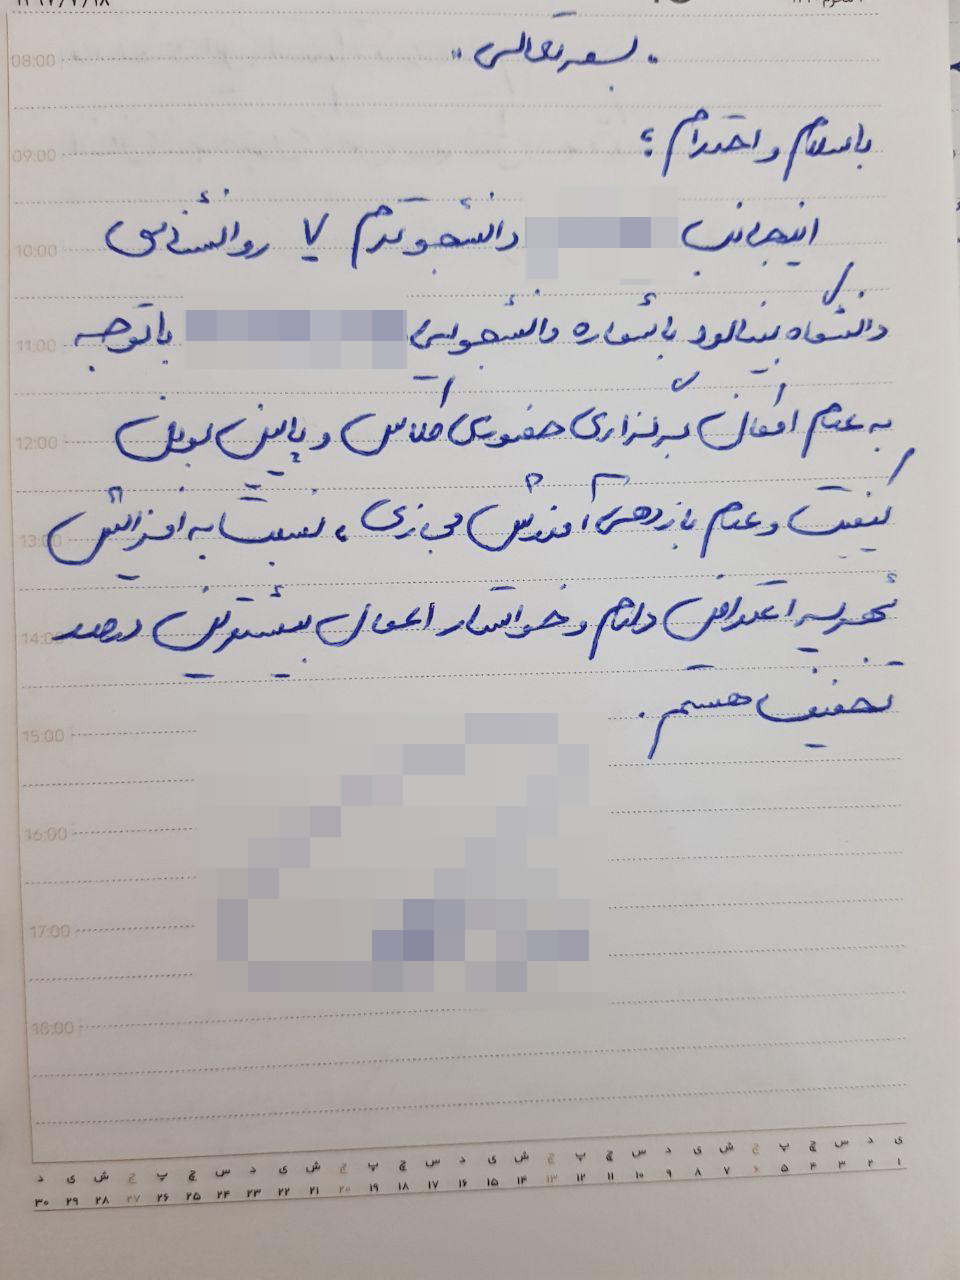 ۱۳۹۷/۷/۱۸
"بسمه تعالی"
با سلام و احترام ؛
اینجانب دانشجو ترم ۷ روانشناسی
دانشگاه بینالود با شماره دانشجویی با توجه
به عدم امکان برگزاری حضوری کلاس و پایین بودن
کیفیت و عدم بازدهی آموزش مجازی ، نسبت به افزایش
شهریه اعتراض دارم و خواستار اعمال بیشترین درصد
تخفیف هستم .
08:00
09:00
10:00
11:00
12:00
13:00
14:00
15:00
16:00
17:00
18:00
ی د س چ پ ج ش ی د س چ پ ج ش ی د س چ پ ج ش ی د س چ پ ج ش ی د
۱ ۲ ۳ ۴ ۵ ۶ ۷ ۸ ۹ ۱۰ ۱۱ ۱۲ ۱۳ ۱۴ ۱۵ ۱۶ ۱۷ ۱۸ ۱۹ ۲۰ ۲۱ ۲۲ ۲۳ ۲۴ ۲۵ ۲۶ ۲۷ ۲۸ ۲۹ ۳۰